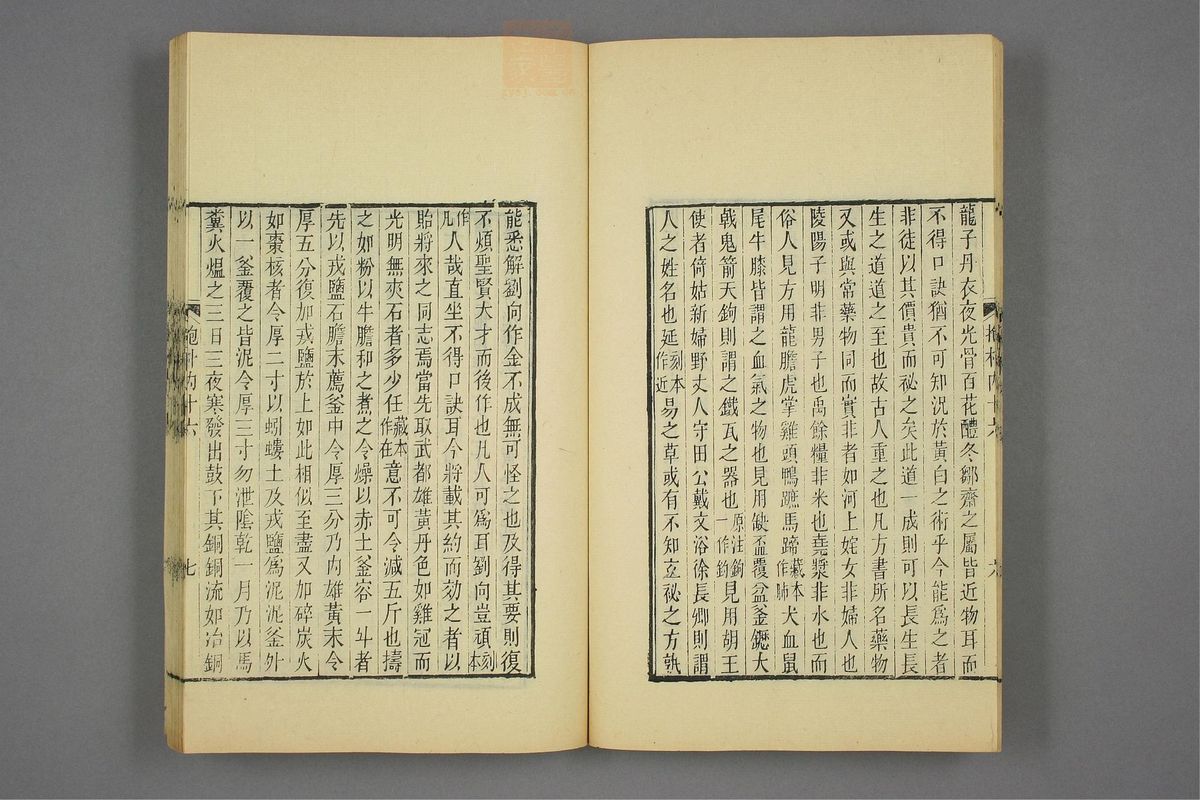 龍子丹衣夜光骨百花醴冬鄒齋之屬皆近物耳而
不得口訣猶不可知況於黃白之術乎今能爲之者
非徒以其價貴而祕之矣此道一成則可以長生長
生之道道之至也故古人重之也凡方書所名藥物
又或與常藥物同而實非者如河上姹女非婦人也
陵陽子明非男子也禹餘糧非米也堯漿非水也而
俗人見方用龍膽虎掌雞頭鴨蹠馬蹄藏本作肺犬血鼠
尾牛膝皆謂之血氣之物也見用缺盃覆盆釜𨯳大
戟鬼箭天鉤則謂之鐵瓦之器也原注鉤一作鈎見用胡王
使者倚姑新婦野丈人守田公戴文浴徐長卿則謂
人之姓名也延刻本作近易之草或有不知玄祕之方孰
抱朴內十六 六
能悉解劉向作金不成無可怪之也及得其要則復
不煩聖賢大才而後作也凡人可爲耳劉向豈頑刻本
作凡人哉直坐不得口訣耳今將載其約而効之者以
貽將來之同志焉當先取武都雄黃丹色如雞冠而
光明無夾石者多少任藏本作在意不可令減五斤也擣
之如粉以牛膽和之煮之令燥以赤土釜容一斗者
先以戎鹽石膽末薦釜中令厚三分乃內雄黃末令
厚五分復加戎鹽於上如此相似至盡又加碎炭火
如棗核者令厚二寸以蚓螻土及戎鹽爲泥泥釜外
以一釜覆之皆泥令厚三寸勿泄陰乾一月乃以馬
糞火熅之三日三夜寒發出鼓下其銅銅流如冶銅
抱朴內十六 七